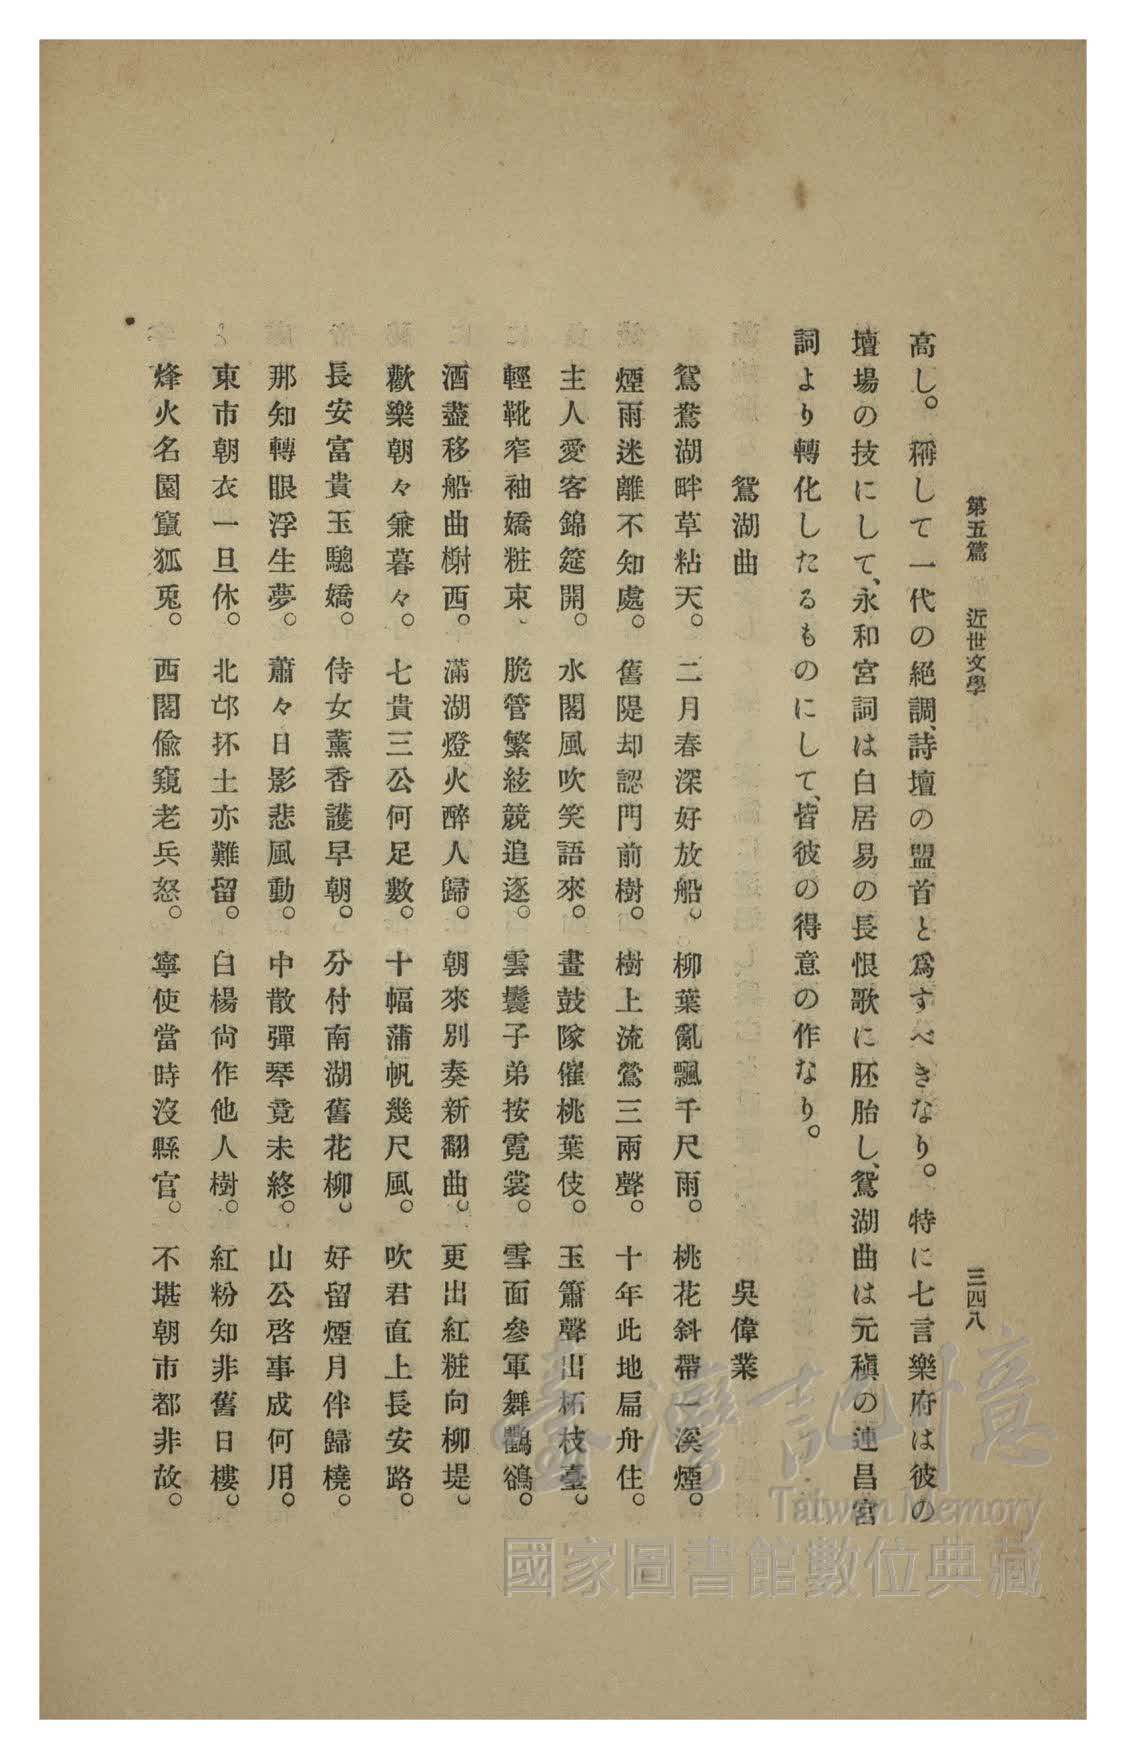 第五篇　近世文學　三四八
高し。稱して一代の絕調、詩壇の盟首と爲すべきなり。特に七言樂府は彼の
壇場の技にして、永和宮詞は白居易の長恨歌に胚胎し、鴛湖曲は元稹の連昌宮
詞より轉化したるものにして、皆彼の得意の作なり。
鴛湖曲　吳偉業
鴛鴦湖畔草粘天。二月春深好放船。柳葉亂飄千尺雨。桃花斜帶一溪煙。
煙雨迷離不知處。舊隄却認門前樹。樹上流鶯三兩聲。十年此地扁舟住。
主人愛客錦筵開。水閣風吹笑語來。畫鼓隊催桃葉伎。玉簫聲出柘枝臺。
輕靴窄袖嬌粧束、脆管繁絃競追逐。雲鬟子弟按霓裳。雪面參軍舞鸜鵒。
酒盡移船曲榭西。滿湖燈火醉人歸。朝來別奏新翻曲。更出紅粧向柳堤。
歡樂朝々兼暮々。七貴三公何足數。十幅蒲帆幾尺風。吹君直上長安路。
長安富貴玉驄嬌。侍女薰香護早朝。分付南湖舊花柳。好留煙月伴歸橈。
那知轉眼浮生夢。蕭々日影悲風動。中散彈琴竟未終。山公啓事成何用。
東市朝衣一旦休。北邙抔土亦難留。白楊尙作他人樹。紅粉知非舊日樓。
烽火名園竄狐兎。西閣偸窺老兵怒。寧使當時沒縣官。不堪朝市都非故。
臺灣記憶
Taiwan Memory
國家圖書館數位典藏